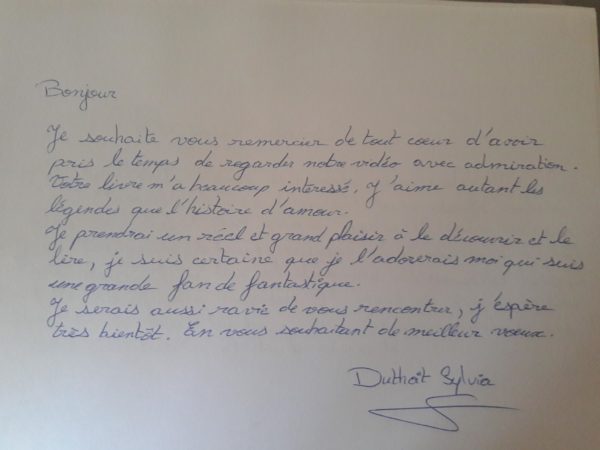 Bonjour
Je souhaite vous remercier de tout cœur d'avoir
pris le temps de regarder notre vidéo avec admiration.
Votre livre m'a beaucoup interessé, J'aime autant les
légendes que l'histoire d'amour.
Je prendrai un réel et grand plaisir à le découvrir et le
lire, je suis certaine que je l'adorerais moi qui suis
une grande fan de fantastique.
Je serais aussi ravie de vous rencontrer, j'espère
très bientôt. En vous souhaitant de meilleur vœux.
Duthoit Sylvia